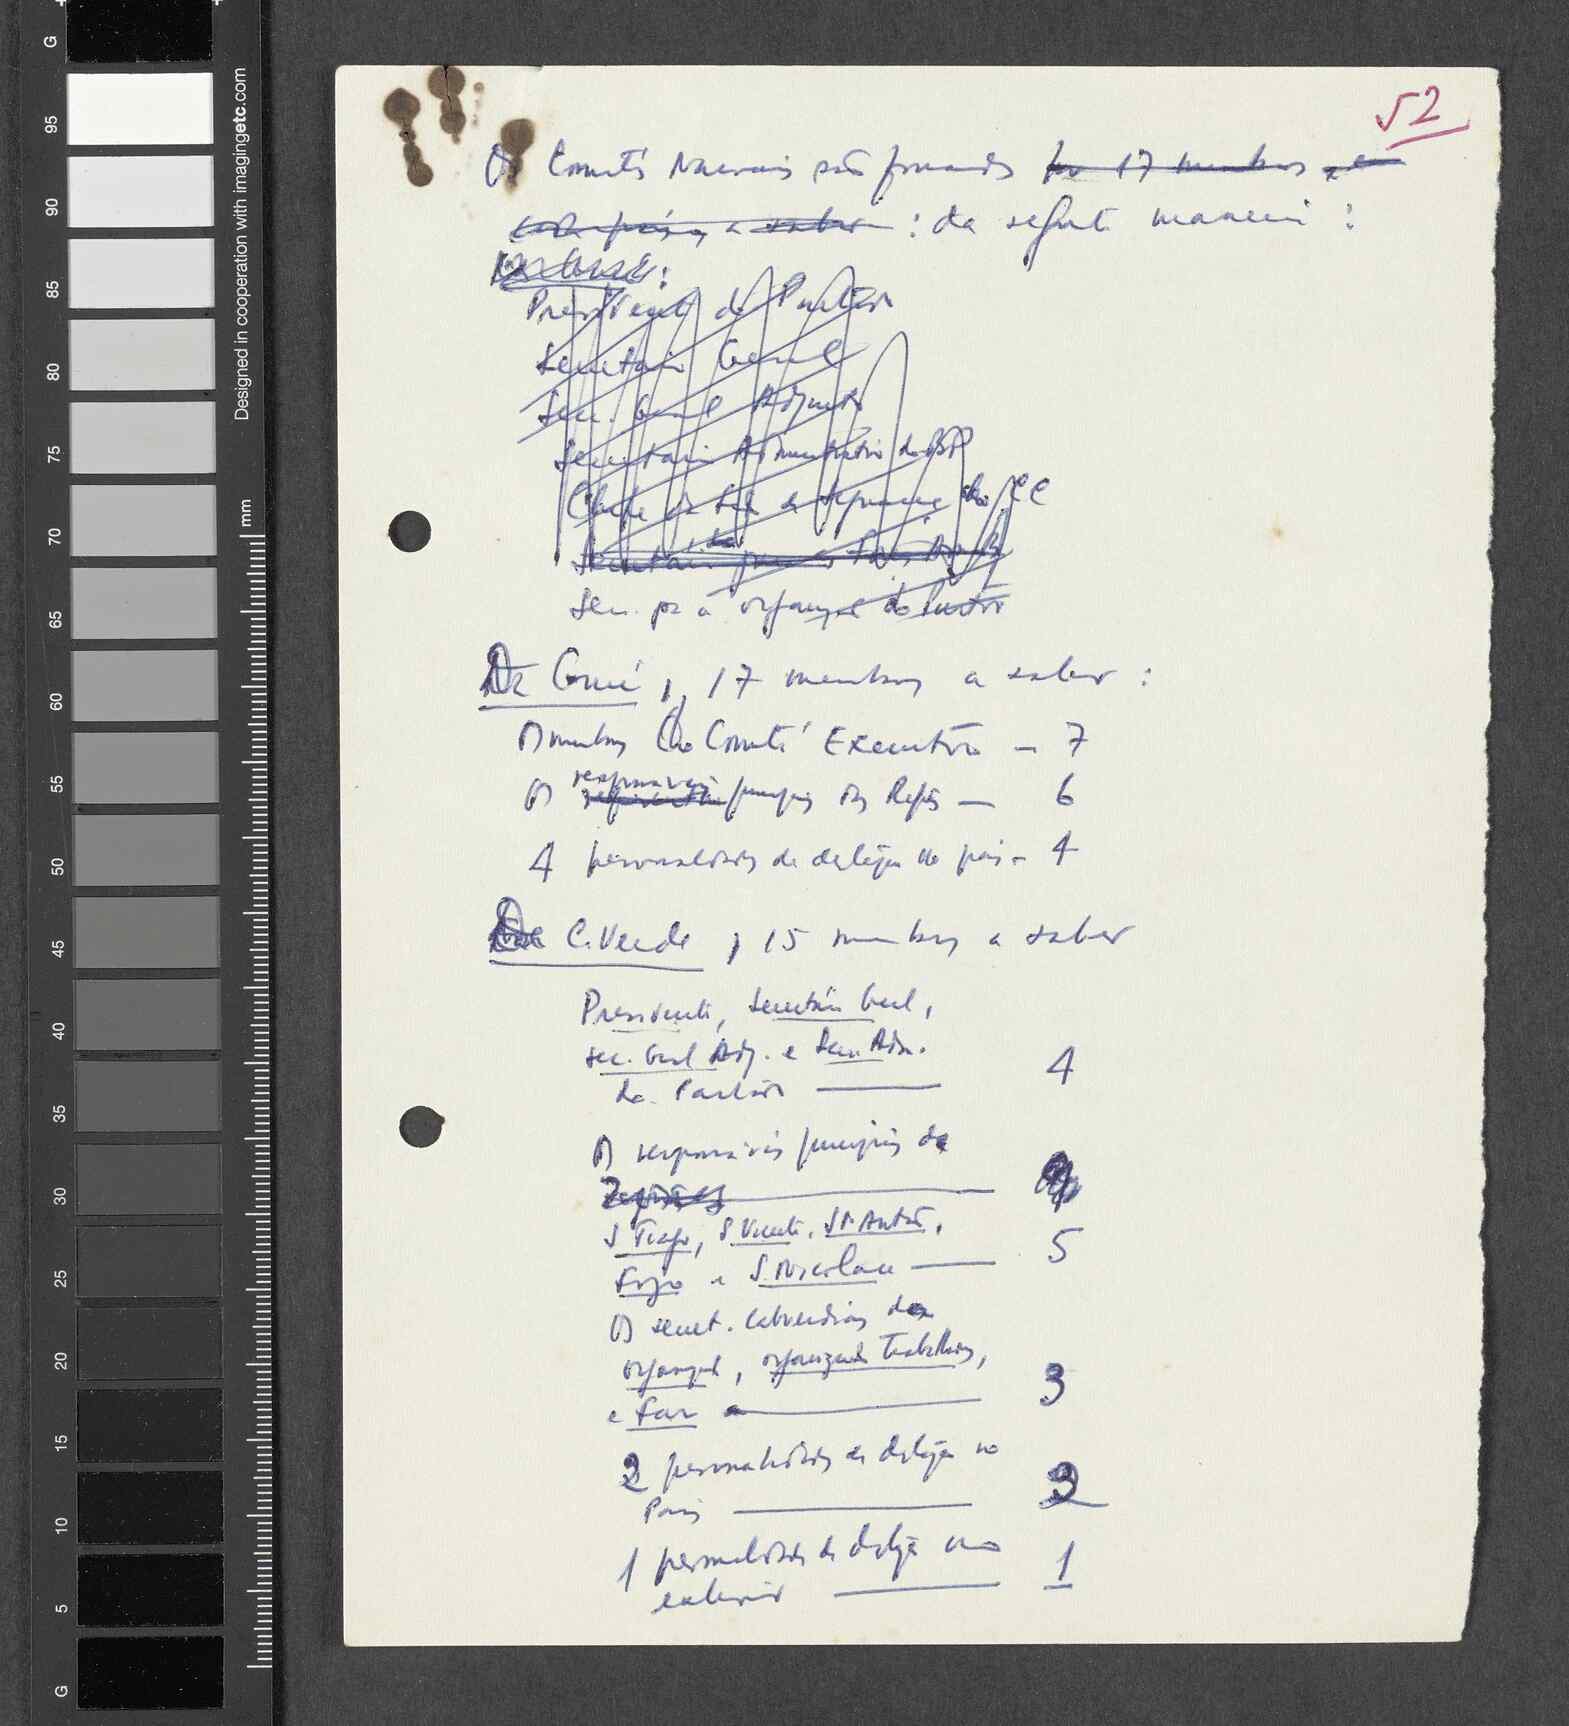 52
Os Comités Nacionais são formados por 17 membros, em
cada país, a saber : da seguinte maneira :
Presidente do Partido
Secretário Geral
Sec. Geral Adjunto
Secretário Administrativo do BP
Chefe de Sec de Segurança do CC
Sec. pa a organiz do Partido
Da Guiné, 17 membros a saber :
Os membros do Comité Executivo — 7
Os responsáveis principais das Regiões — 6
4 personalidades de destaque no país — 4
De C. Verde, 15 membros a saber
Presidente, Secretário Geral,
sec. Geral Adj. e Sec. Adm.
do Partido — 4
Os responsáveis principais de
Regiões
S Tiago, S. Vicente, St. Antão,
Fogo e S. Nicolau — 5
Os secret. caboverdianos da
organizaç, organização Trabalhos,
e Far — 3
2 personalidades de destaque no
País — 2
1 personalidade de destaque no
exterior — 1
G
95
90
85
80
75
70
65
60
55
50
45
40
35
30
25
20
15
10
5
G
mm
Designed in cooperation with imagingetc.com